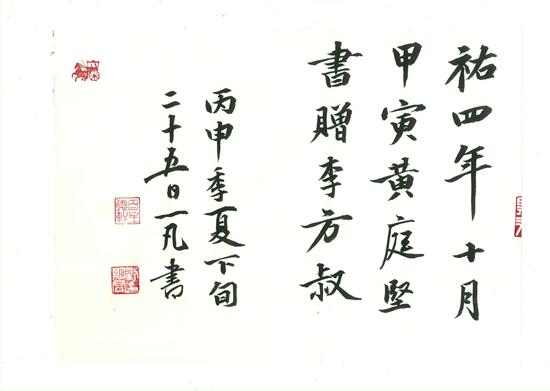 祐四年十月
甲寅黄庭堅
書贈李方叔
丙申季夏下旬
二十五日一凡書